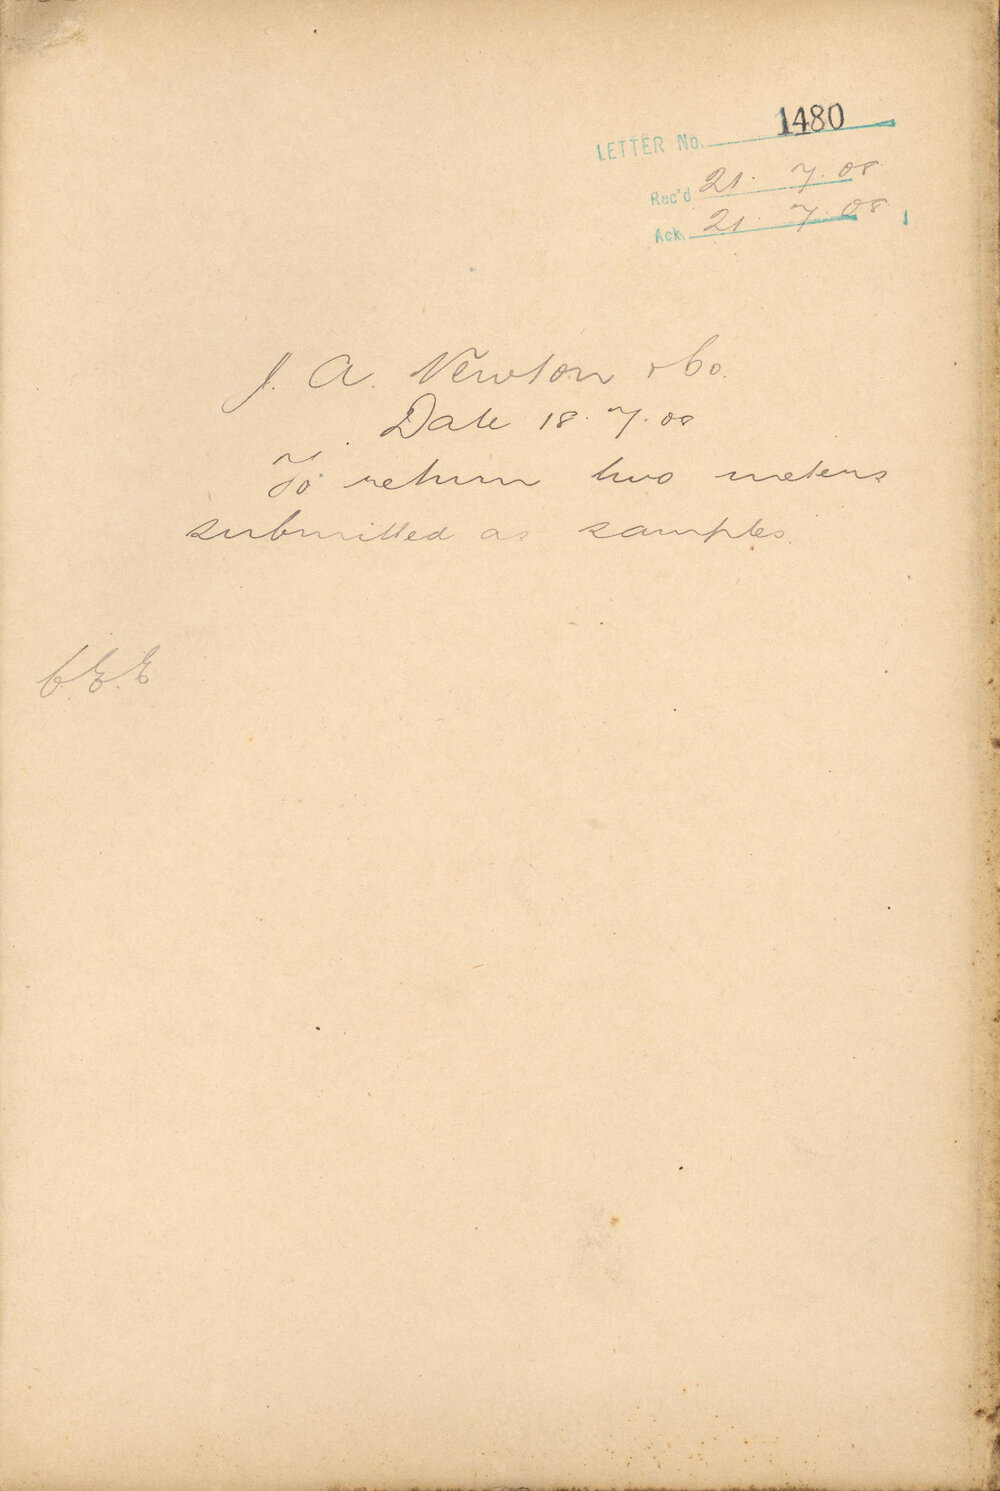 LETTER No. 1480
Rec'd 21. 7. 08
Ack. 21. 7. 08
J. A. Newton & Co.
Date 18. 7. 08
To return two meters
submitted as samples.
C.E.E